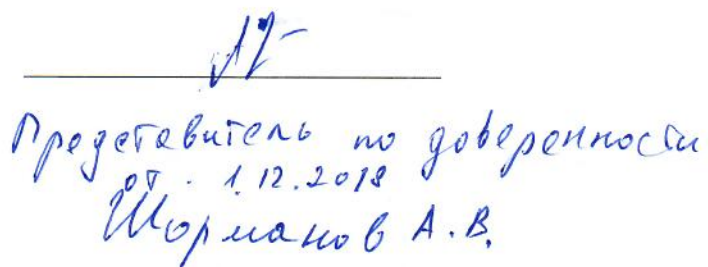 Представитель по доверенности
от. 1.12.2018
Шорманов А.В.